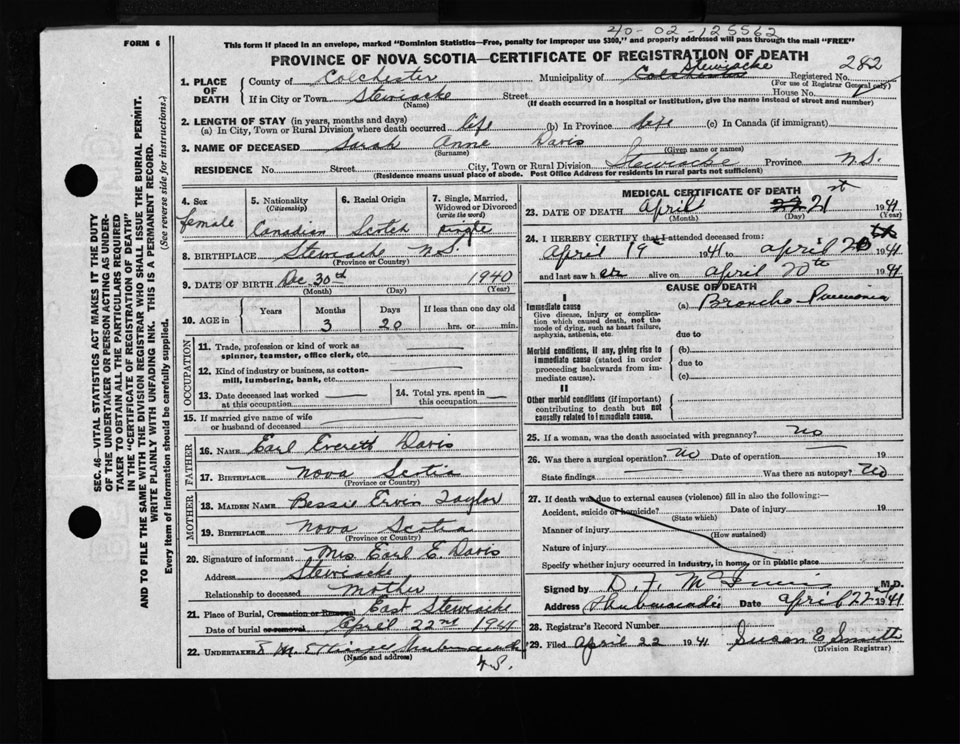 40-02-125562
FORM 6
This form if placed in an envelope, marked "Dominion Statistics—Free, penalty for improper use $300," and properly addressed will pass through the mail "FREE"
PROVINCE OF NOVA SCOTIA—CERTIFICATE OF REGISTRATION OF DEATH
282
1. PLACE OF DEATH
County of Colchester Municipality of Colchester Stewiacke Registered No.
(For use of Registrar General only)
If in City or Town Stewiacke Street House No.
(Name) (If death occurred in a hospital or institution, give the name instead of street and number)
2. LENGTH OF STAY (in years, months and days)
(a) In City, Town or Rural Division where death occurred life (b) In Province life (c) In Canada (if immigrant)
3. NAME OF DECEASED Sarah Anne Davis
(Surname) (Given name or names)
RESIDENCE No. Street City, Town or Rural Division Stewiacke Province N.S.
(Residence means usual place of abode. Post Office Address for residents in rural parts not sufficient)
4. Sex female
5. Nationality (Citizenship) Canadian
6. Racial Origin Scotch
7. Single, Married, Widowed or Divorced (write the word) single
8. BIRTHPLACE Stewiacke N.S.
(Province or Country)
9. DATE OF BIRTH Dec 30th 1940
(Month) (Day) (Year)
10. AGE in Years Months 3 Days 20 If less than one day old hrs. or min.
OCCUPATION
11. Trade, profession or kind of work as spinner, teamster, office clerk, etc.
12. Kind of industry or business, as cotton-mill, lumbering, bank, etc.
13. Date deceased last worked at this occupation
14. Total yrs. spent in this occupation
15. If married give name of wife or husband of deceased
FATHER
16. NAME Earl Everett Davis
17. BIRTHPLACE Nova Scotia
(Province or Country)
MOTHER
18. MAIDEN NAME Bessie Ervin Taylor
19. BIRTHPLACE Nova Scotia
(Province or Country)
20. Signature of informant Mrs Earl E. Davis
Address Stewiacke
Relationship to deceased mother
21. Place of Burial, Cremation or Removal East Stewiacke
Date of burial or removal April 22nd 1941
22. UNDERTAKER
(Name and address)
N.S.
MEDICAL CERTIFICATE OF DEATH
23. DATE OF DEATH April 21st 1941
(Month) (Day) (Year)
24. I HEREBY CERTIFY that I attended deceased from:
April 19th 1941 to April 20th 1941
and last saw h er alive on April 20th 1941
CAUSE OF DEATH
I
Immediate cause
Give disease, injury or complication which caused death, not the mode of dying, such as heart failure, asphyxia, asthenia, etc.
(a) Broncho-Pneumonia
due to
Morbid conditions, if any, giving rise to immediate cause (stated in order proceeding backwards from immediate cause).
(b)
due to
(c)
II
Other morbid conditions (if important) contributing to death but not causally related to immediate cause.
25. If a woman, was the death associated with pregnancy? No
26. Was there a surgical operation? No Date of operation 19
State findings Was there an autopsy? No
27. If death was due to external causes (violence) fill in also the following:
Accident, suicide or homicide? Date of injury 19
(State which)
Manner of injury
(How sustained)
Nature of injury
Specify whether injury occurred in industry, in home, or in public place
Signed by D. F. McInnis M.D.
Address Shubenacadie Date April 22 1941
28. Registrar's Record Number
29. Filed April 22 1941 Susan E. Smith
(Division Registrar)
SEC. 46—VITAL STATISTICS ACT MAKES IT THE DUTY
OF THE UNDERTAKER OR PERSON ACTING AS UNDER-
TAKER TO OBTAIN ALL THE PARTICULARS REQUIRED
IN THE "CERTIFICATE OF REGISTRATION OF DEATH"
AND TO FILE THE SAME WITH THE DIVISION REGISTRAR WHO SHALL ISSUE THE BURIAL PERMIT.
WRITE PLAINLY WITH UNFADING INK. THIS IS A PERMANENT RECORD.
Every item of information should be carefully supplied. (See reverse side for instructions.)